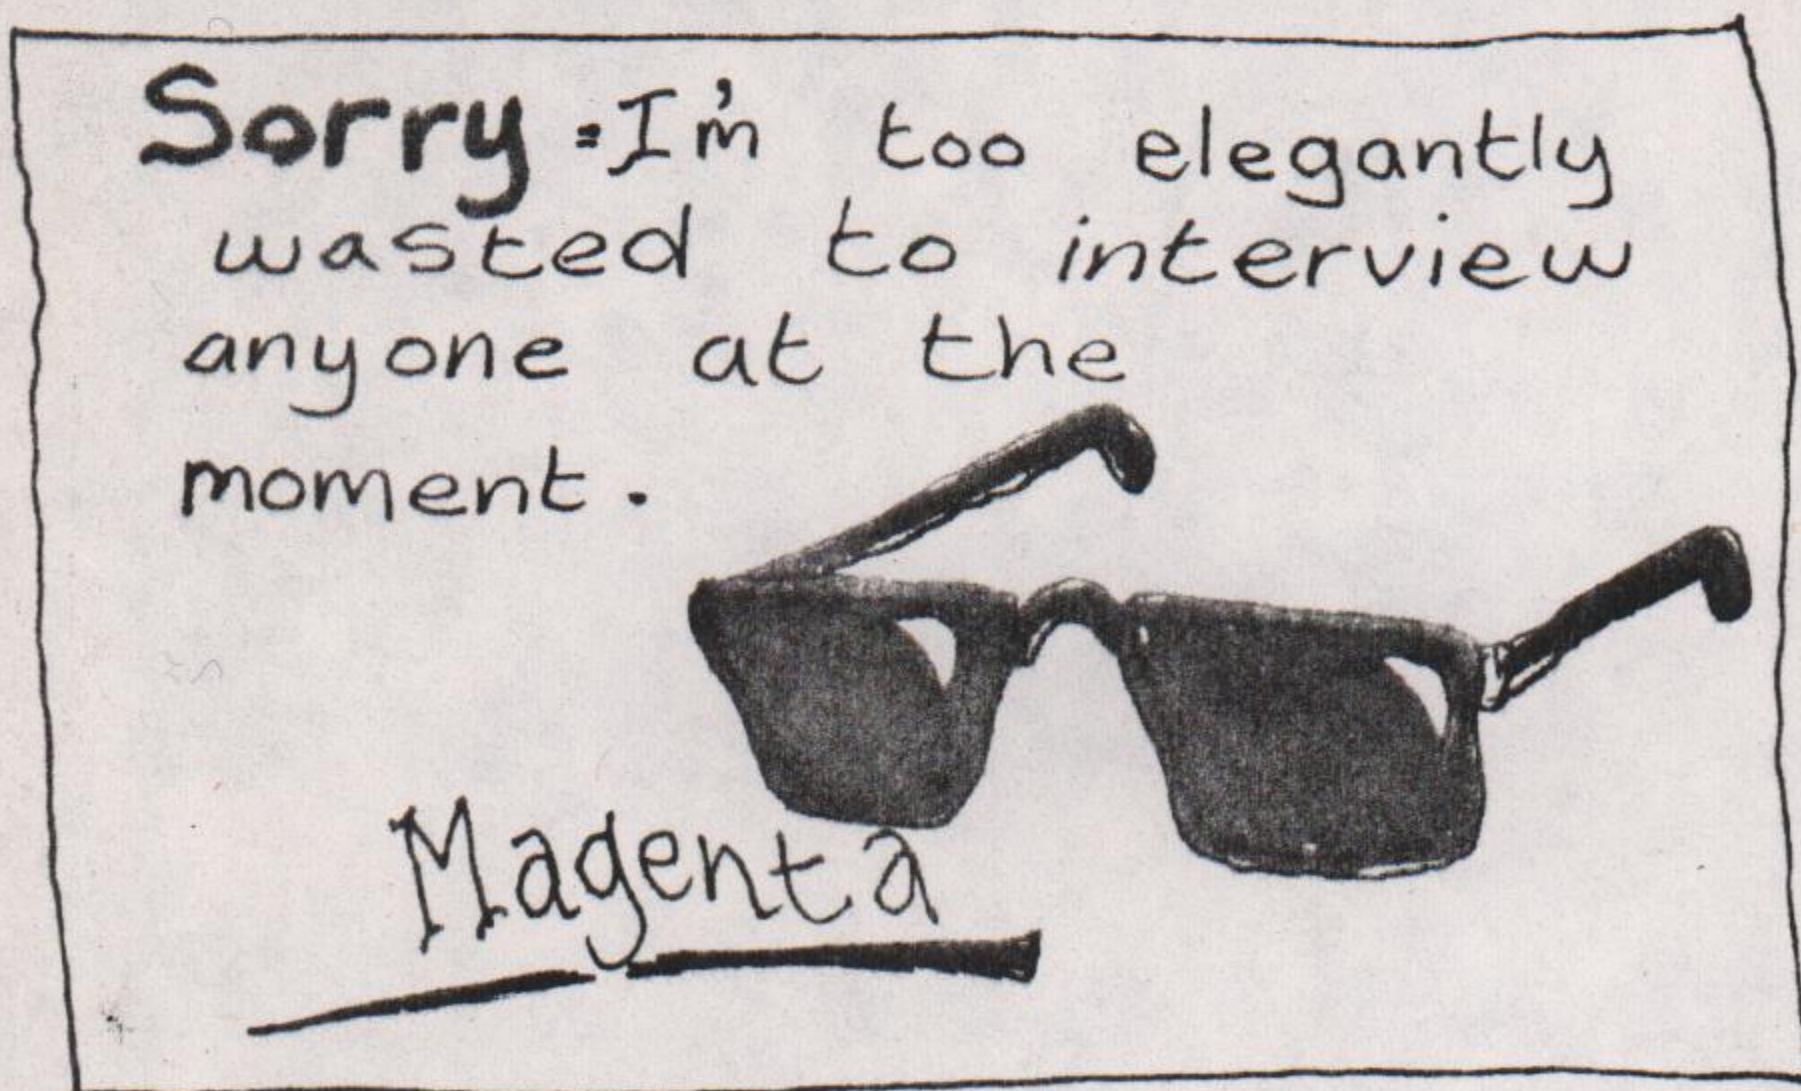 Sorry - I'm too elegantly
wasted to interview
anyone at the
moment.
Magenta